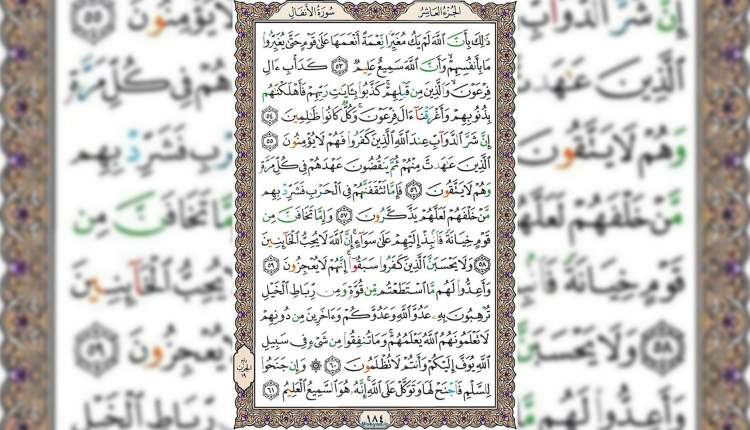 الجزء العاشر
سورة الأنفال
ذَٰلِكَ بِأَنَّ اللَّهَ لَمْ يَكُ مُغَيِّرًا نِعْمَةً أَنْعَمَهَا عَلَىٰ قَوْمٍ حَتَّىٰ يُغَيِّرُوا
مَا بِأَنْفُسِهِمْ وَأَنَّ اللَّهَ سَمِيعٌ عَلِيمٌ ٥٣ كَدَأْبِ ءَالِ
فِرْعَوْنَ وَالَّذِينَ مِن قَبْلِهِمْ كَذَّبُوا بِـَٔايَاتِ رَبِّهِمْ فَأَهْلَكْنَاهُم
بِذُنُوبِهِمْ وَأَغْرَقْنَا ءَالَ فِرْعَوْنَ وَكُلٌّ كَانُوا ظَالِمِينَ ٥٤
إِنَّ شَرَّ الدَّوَابِّ عِندَ اللَّهِ الَّذِينَ كَفَرُوا فَهُمْ لَا يُؤْمِنُونَ ٥٥
الَّذِينَ عَاهَدتَّ مِنْهُمْ ثُمَّ يَنقُضُونَ عَهْدَهُمْ فِي كُلِّ مَرَّةٍ
وَهُمْ لَا يَتَّقُونَ ٥٦ فَإِمَّا تَثْقَفَنَّهُمْ فِي الْحَرْبِ فَشَرِّدْ بِهِم
مَّنْ خَلْفَهُمْ لَعَلَّهُمْ يَذَّكَّرُونَ ٥٧ وَإِمَّا تَخَافَنَّ مِن
قَوْمٍ خِيَانَةً فَانبِذْ إِلَيْهِمْ عَلَىٰ سَوَاءٍ إِنَّ اللَّهَ لَا يُحِبُّ الْخَائِنِينَ
٥٨ وَلَا يَحْسَبَنَّ الَّذِينَ كَفَرُوا سَبَقُوا إِنَّهُمْ لَا يُعْجِزُونَ ٥٩
وَأَعِدُّوا لَهُم مَّا اسْتَطَعْتُم مِّن قُوَّةٍ وَمِن رِّبَاطِ الْخَيْلِ
تُرْهِبُونَ بِهِ عَدُوَّ اللَّهِ وَعَدُوَّكُمْ وَءَاخَرِينَ مِن دُونِهِمْ
لَا تَعْلَمُونَهُمُ اللَّهُ يَعْلَمُهُمْ وَمَا تُنفِقُوا مِن شَيْءٍ فِي سَبِيلِ
اللَّهِ يُوَفَّ إِلَيْكُمْ وَأَنتُمْ لَا تُظْلَمُونَ ٦٠ ۞ وَإِن جَنَحُوا
لِلسَّلْمِ فَاجْنَحْ لَهَا وَتَوَكَّلْ عَلَى اللَّهِ إِنَّهُ هُوَ السَّمِيعُ الْعَلِيمُ ٦١
١٨٤